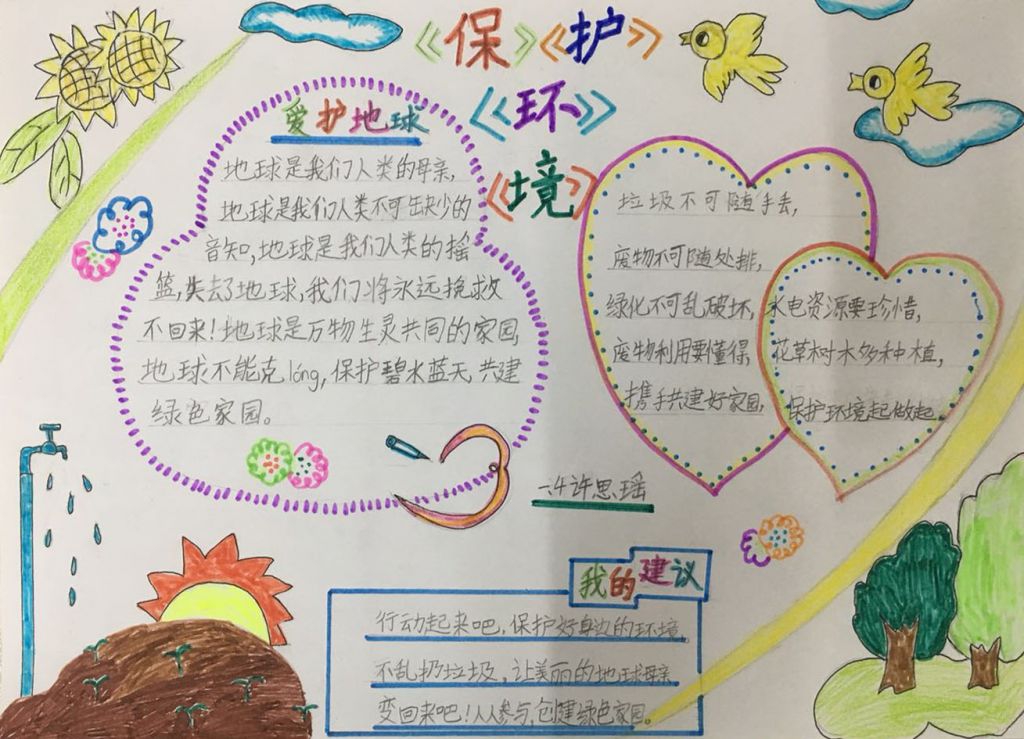 《保》《护》
《环》
《境》
爱护地球
地球是我们人类的母亲,
地球是我们人类不可缺少的
音知,地球是我们人类的摇
篮,失去了地球,我们将永远挽救
不回来!地球是万物生灵共同的家园,
地球不能克lóng,保护碧水蓝天,共建
绿色家园。
垃圾不可随手丢,
废物不可随处排,
绿化不可乱破坏,
废物利用要懂得,
携手共建好家园,
水电资源要珍惜,
花草树木多种植,
保护环境起做起。
一.4许思瑶
我的建议
行动起来吧,保护好身边的环境,
不乱扔垃圾,让美丽的地球母亲
变回来吧!人人参与,创建绿色家园。